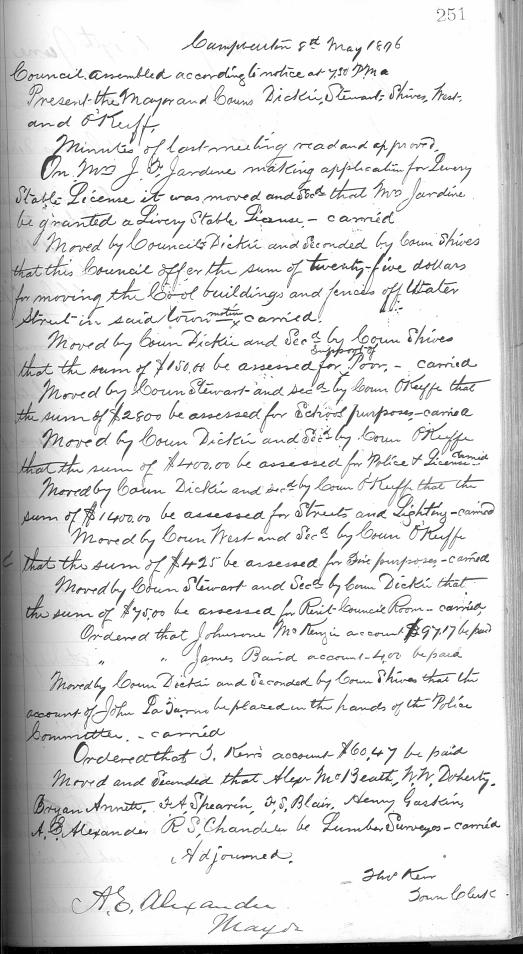 251
Campbellton 8th May 1896
Council assembled according to notice at 7.30 P.M.
Present the Mayor and Couns Dickie, Stewart, Shives, West,
and O'Keeffe,
Minutes of last meeting read and approved.
On Mrs J. F. Jardine making application for Livery
Stable License it was moved and Secd that Mrs Jardine
be granted a Livery Stable License, - carried
Moved by Council Dickie and Seconded by Coun Shives
that this Council offer the sum of twenty-five dollars
for moving the buildings and fences off Water
Street in said town motion carried.
Moved by Coun Dickie and Secd by Coun Shives
that the sum of $150.00 be assessed for Support of Poor, - carried
Moved by Coun Stewart and secd by Coun O'Keeffe that
the sum of $2800 be assessed for School purposes - carried
Moved by Coun Dickie and Secd by Coun O'Keeffe
that the sum of $400.00 be assessed for Police & License - carried
Moved by Coun Dickie and secd by Coun O'Keeffe that the
sum of $1400.00 be assessed for Streets and Lighting - carried
Moved by Coun West and Secd by Coun O'Keeffe
that the sum of $425 be assessed for Fire purposes - carried
Moved by Coun Stewart and Secd by Coun Dickie that
the sum of $75.00 be assessed for Rent Council Room - carried,
Ordered that Johnsone McKenzie account $97.17 be paid
" " James Baird account 4.00 be paid
Moved by Coun Dickie and Seconded by Coun Shives that the
account of John be placed in the hands of the Police
Committee. - carried
Ordered that T. Kerr's account $60.47 be paid
Moved and Seconded that Alexr McBeath, W.W. Doherty,
Bryan Annett, F A Spearin, F. S. Blair, Henry Gaskin,
A. E. Alexander R S. Chandler be Lumber Surveyors - carried
Adjourned.
Thos Kerr
Town Clerk
A. E. Alexander
Mayor